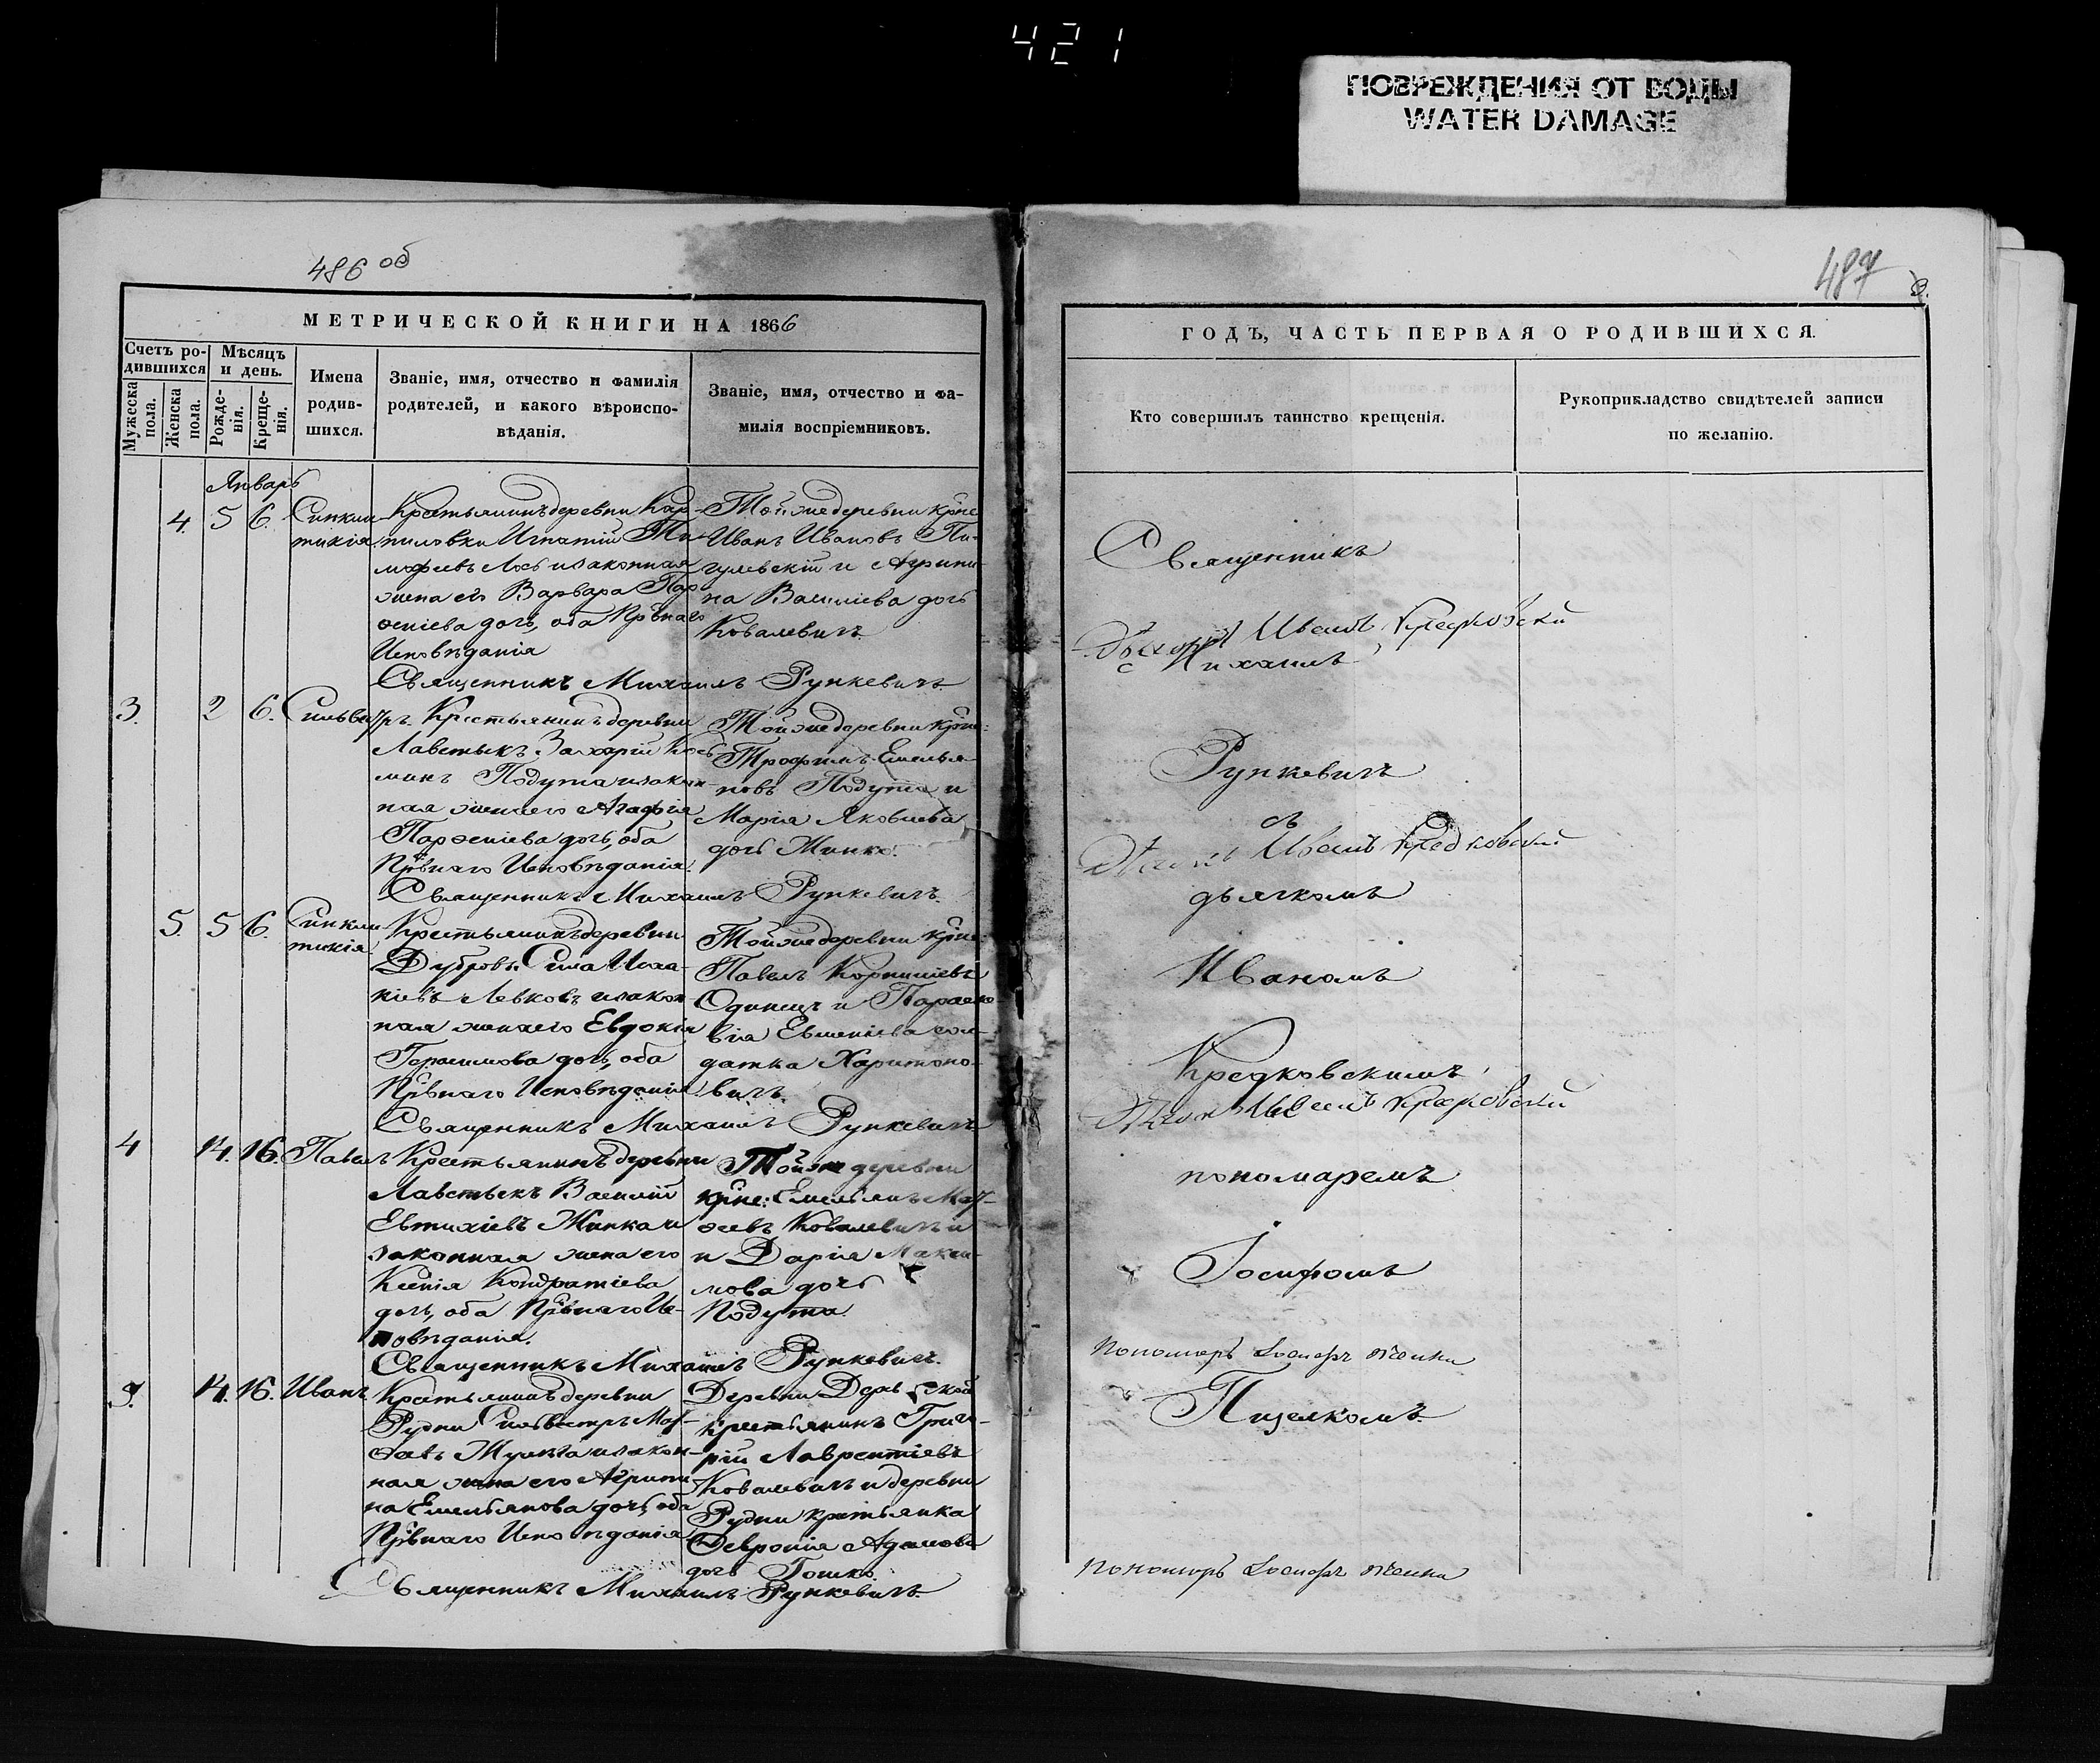 421
ПОВРЕЖДЕНИЯ ОТ ВОДЫ
WATER DAMAGE
486 об
МЕТРИЧЕСКОЙ КНИГИ НА 1866
Счетъ ро-
дившихся
Мѣсяцъ
и день.
Мужеска
пола.
Женска
пола.
Рожде-
нія.
Креще-
нія.
Имена
родив-
шихся.
Званіе, имя, отчество и фамилія
родителей, и какого вѣроиспо-
вѣданія.
Званіе, имя, отчество и фа-
милія воспріемниковъ.
Январь
4. 5 6. Синкли-
тикія.
Крестьянинъ деревни Кар-
пиловки Игнатій Ти-
мофеевъ Лось и законная
жена его Варвара Пар-
ѳеніева дочь, оба Пр҃внаго
Исповѣданія
Тойже деревни кр҃не
Иванъ Ивановъ Пи-
гулевскій и Агрипи-
на Василіева дочь
Ковалевичъ
Священникъ Михаилъ Рункевичъ
3. 2 6. Сильвестръ.
Крестьянинъ деревни
Лавстыкъ Захарій
Подута и закон-
ная жена его Агафія
Парѳеніева дочь, оба
Пр҃внаго Исповѣданія.
Тойже деревни кр҃не:
Трофимъ Емелья-
новъ Подута и
Марія Яковлева
дочь Жинко.
Священникъ Михаилъ Рункевичъ.
5. 5 6. Синкли-
тикія.
Крестьянинъ деревни
Дубровъ Сила Иса-
кіевъ Левковъ и закон-
ная жена его Евдокія
Герасимова дочь, оба
Пр҃внаго Исповѣданія
Тойже деревни кр҃не:
Павелъ Корниліевъ
Одинецъ и Параске-
вія Евменіева сол-
датка Харитоно-
вичъ.
Священникъ Михаилъ Рункевичъ
4 14. 16. Павелъ
Крестьянинъ деревни
Лавстыкъ Василій
Евтихіевъ Жинка и
законная жена его
Ксенія Кондратіева
дочь, оба Пр҃внаго Ис-
повѣданія.
Тойже деревни
кр҃не: Емельянъ Мат-
ѳеевъ Ковалевичъ и
и Дарія Макси-
мова дочь
Подута.
Священникъ Михаилъ Рункевичъ.
5. 14. 16. Иванъ
Крестьянинъ деревни
Рудни Сильвестръ Мат-
ѳеевъ и закон-
ная жена его Агрипи-
на Емельянова дочь, оба
Пр҃внаго Исповѣданія
Деревни
крестьянинъ Григо-
рій Лаврентіевъ
Ковалевичъ и деревни
Рудни крестьянка
Февронія Адамова
дочь Гошко.
Священникъ Михаилъ Рункевичъ.
487
3.
ГОДЪ, ЧАСТЬ ПЕРВАЯ О РОДИВШИХСЯ.
Кто совершилъ таинство крещенія.
Рукоприкладство свидѣтелей записи
по желанію.
Священникъ
Иванъ Кредковскій
Михаилъ
Рункевичъ
съ
Иванъ Кредковскій
дьячкомъ
Иваномъ
Кредковскимъ,
Иванъ Кредковскій
пономаремъ
Іосифомъ
Пономарь Іосифъ
Пщелкомъ.
Пономарь Іосифъ